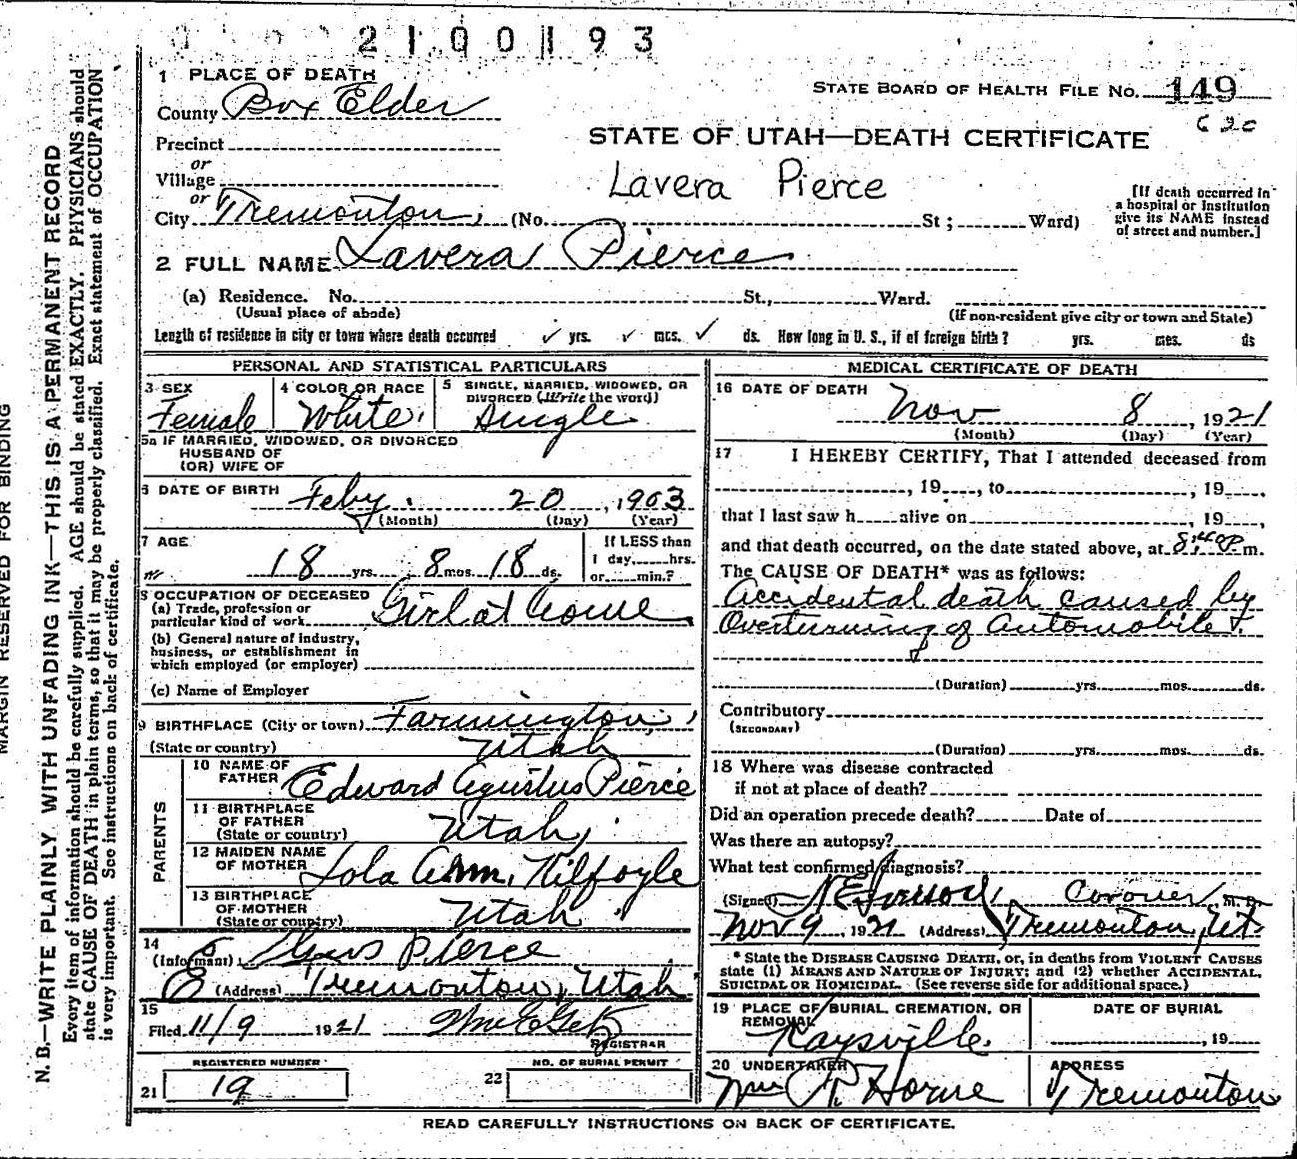 2100193
1 PLACE OF DEATH
County Box Elder
STATE BOARD OF HEALTH FILE NO. 149
620
Precinct
STATE OF UTAH—DEATH CERTIFICATE
or
Village
Lavera Pierce
or
City Tremonton, (No. St; Ward)
[If death occurred in
a hospital or institution
give its NAME instead
of street and number.]
2 FULL NAME Lavera Pierce
(a) Residence. No. St., Ward.
(Usual place of abode) (If non-resident give city or town and State)
Length of residence in city or town where death occurred ✓ yrs. ✓ mos. ✓ ds. How long in U. S., if of foreign birth? yrs. mos. ds
PERSONAL AND STATISTICAL PARTICULARS
3 SEX
Female
4 COLOR OR RACE
White
5 SINGLE, MARRIED, WIDOWED, OR
DIVORCED (Write the word)
Single
5a IF MARRIED, WIDOWED, OR DIVORCED
HUSBAND OF
(OR) WIFE OF
6 DATE OF BIRTH Feby. 20, 1903
(Month) (Day) (Year)
7 AGE
18 yrs. 8 mos. 18 ds.
If LESS than
1 day, hrs.
or min.?
8 OCCUPATION OF DECEASED
(a) Trade, profession or
particular kind of work Girl at home
(b) General nature of industry,
business, or establishment in
which employed (or employer)
(c) Name of Employer
9 BIRTHPLACE (City or town) Farmington,
(State or country) Utah
PARENTS
10 NAME OF
FATHER Edward Agustus Pierce
11 BIRTHPLACE
OF FATHER
(State or country) Utah,
12 MAIDEN NAME
OF MOTHER Lola Ann. Kilfoyle
13 BIRTHPLACE
OF MOTHER
(State or country) Utah.
14
(Informant) E Gus Pierce
(Address) Tremonton, Utah
15
Filed 11/9 1921 Wm E Getz
REGISTRAR
REGISTERED NUMBER
21 19
NO. OF BURIAL PERMIT
22
MEDICAL CERTIFICATE OF DEATH
16 DATE OF DEATH
Nov 8, 1921
(Month) (Day) (Year)
17 I HEREBY CERTIFY, That I attended deceased from
, 19 , to , 19 ,
that I last saw h alive on , 19 ,
and that death occurred, on the date stated above, at m.
The CAUSE OF DEATH* was as follows:
Accidental death caused by
Overturning of Automobile
(Duration) yrs. mos. ds.
Contributory
(SECONDARY)
(Duration) yrs. mos. ds.
18 Where was disease contracted
if not at place of death?
Did an operation precede death? Date of
Was there an autopsy?
What test confirmed diagnosis?
(Signed) Coroner M. D.
Nov 9, 1921 (Address) Tremonton, Ut
* State the DISEASE CAUSING DEATH, or, in deaths from VIOLENT CAUSES
state (1) MEANS AND NATURE OF INJURY; and (2) whether ACCIDENTAL,
SUICIDAL OR HOMICIDAL. (See reverse side for additional space.)
19 PLACE OF BURIAL, CREMATION, OR
REMOVAL
Kaysville.
DATE OF BURIAL
, 19
20 UNDERTAKER
Wm P. Horne
ADDRESS
Tremonton
READ CAREFULLY INSTRUCTIONS ON BACK OF CERTIFICATE.
MARGIN RESERVED FOR BINDING
N. B.—WRITE PLAINLY WITH UNFADING INK—THIS IS A PERMANENT RECORD
Every item of information should be carefully supplied. AGE should be stated EXACTLY. PHYSICIANS should
state CAUSE OF DEATH in plain terms, so that it may be properly classified. Exact statement of OCCUPATION
is very important. See instructions on back of certificate.